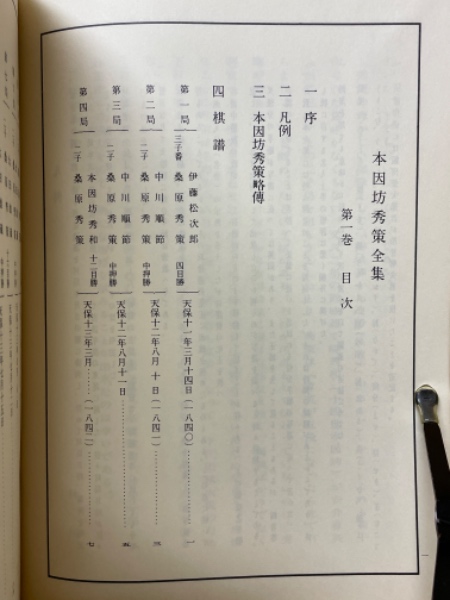 本因坊秀策全集
第一巻 目次
一 序
二 凡例
三 本因坊秀策略傳
四 棋譜
第一局
伊藤松次郎
三子番 桑原秀策 四目勝
天保十一年三月十四日(一八四〇)……一
第二局
中川順節
二子 桑原秀策 中押勝
天保十二年八月十日(一八四一)……三
第三局
中川順節
二子 桑原秀策 中押勝
天保十二年八月十一日……五
第四局
本因坊秀和
二子 桑原秀策 十二目勝
天保十三年三月……(一八四二)……七